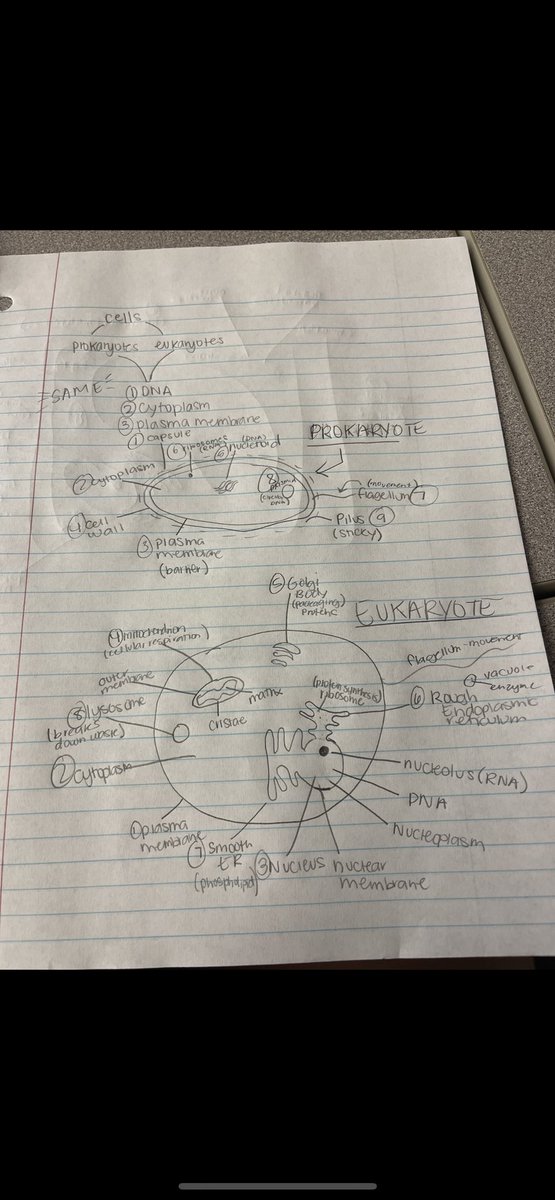 cells
prokaryotes eukaryotes
SAME
① DNA
② cytoplasm
③ plasma membrane
① capsule
PROKARYOTE
⑥ ribosomes (RNA)
⑥ nucleoid (DNA)
② cytoplasm
8 plasmid
(circular DNA)
(movement)
flagellum 7
④ cell
wall
Pilus ⑨
(sticky)
③ plasma
membrane
(barrier)
⑤ Golgi
Body
(packaging)
Proteins
EUKARYOTE
mitochondrion
(cellular respiration)
flagellum-movement
outer
membrane
matrix
cristae
(protein synthesis)
ribosome
vacuole
enzyme
⑥ Rough
Endoplasmic
reticulum
⑧ lysosome
(breaks
down waste)
② cytoplasm
nucleolus (RNA)
DNA
Nucleoplasm
① plasma
membrane
⑦ Smooth
ER
(phospholipid)
③ Nucleus
nuclear
membrane